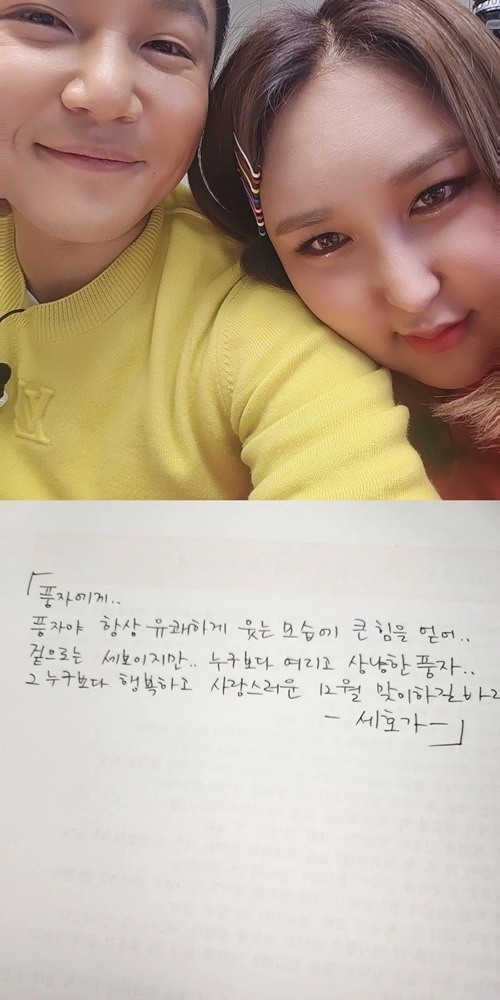 LV
「풍자에게..
풍자야 항상 유쾌하게 웃는 모습에 큰 힘을 얻어..
겉으로는 세보이지만.. 누구보다 여리고 상냥한 풍자..
그 누구보다 행복하고 사랑스러운 12월 맞이하길 바라
- 세호가 -」